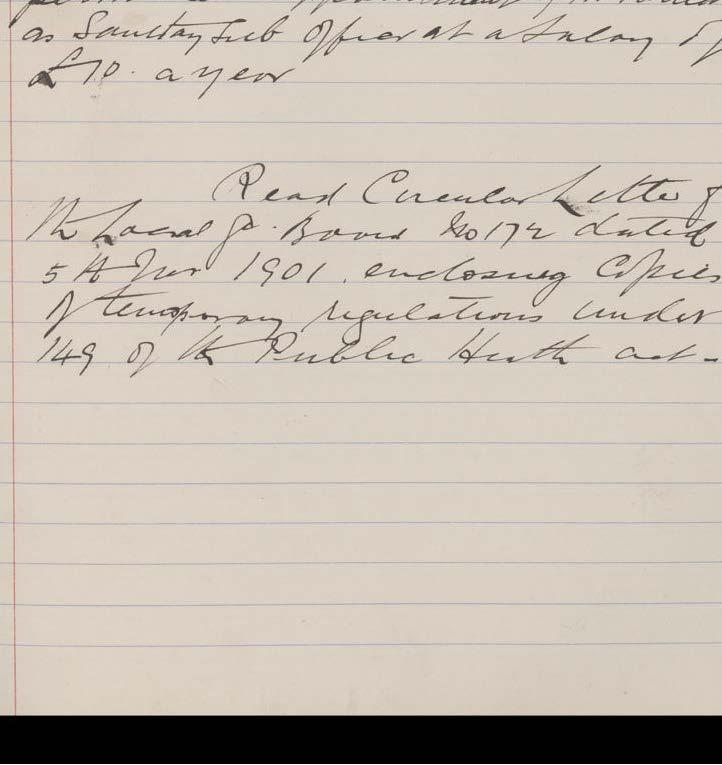 as Sanitary Sub Officer at a Salary of
£10. a year
Read Circular Letter of
the Local Gt. Board No 172 dated
5th 1901. enclosing Copies
of temporary regulations under
149 of the Public Health act-